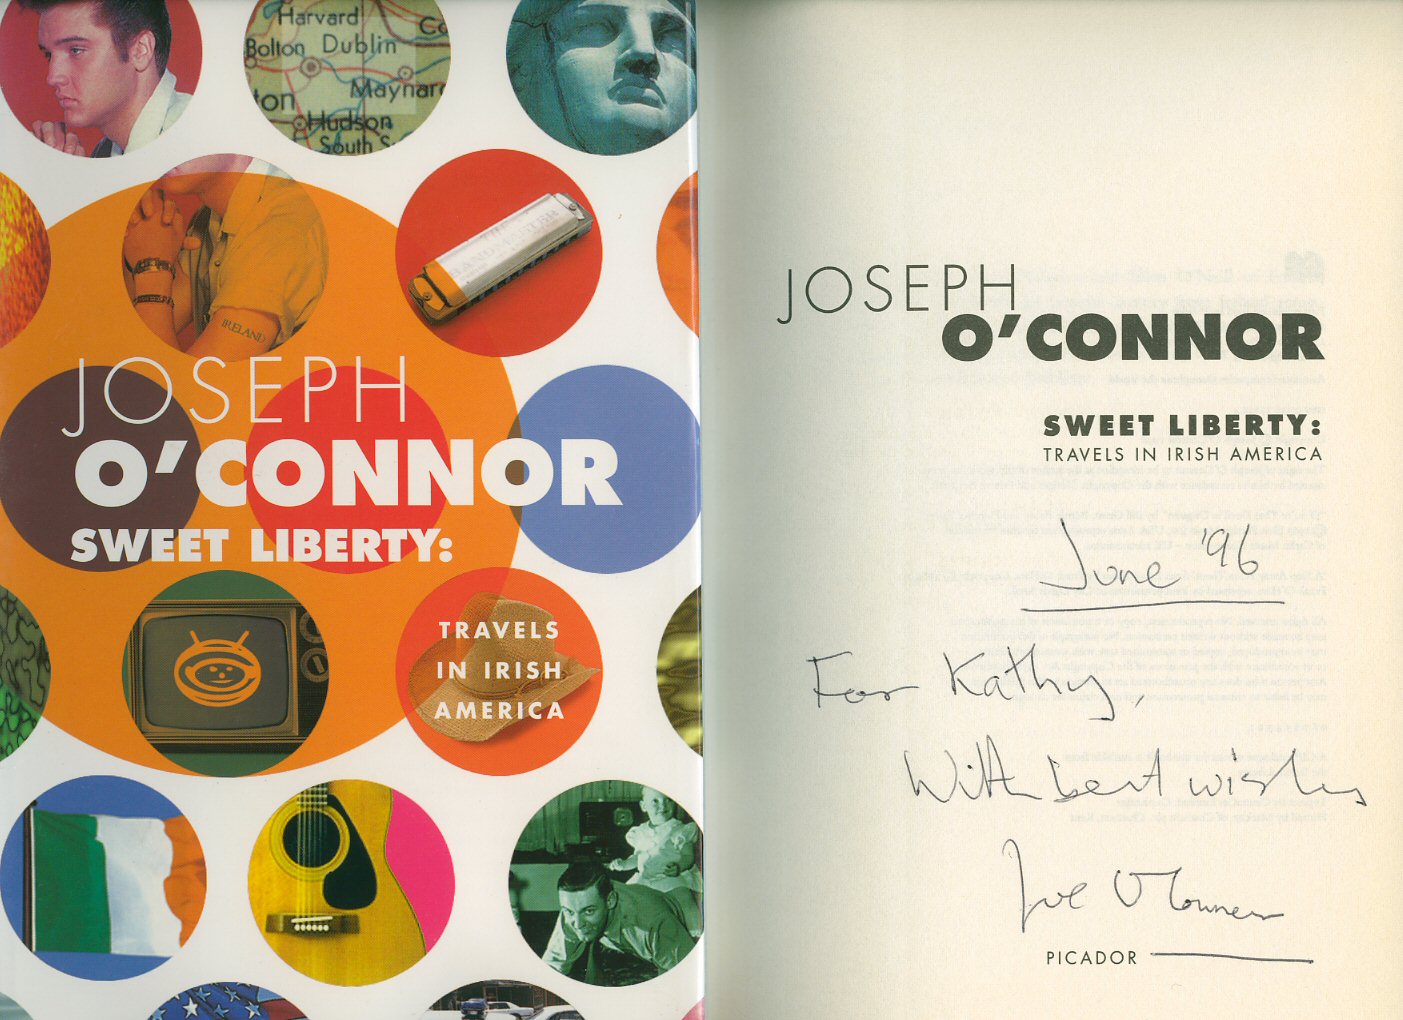 Harvard
Bolton Dublin Co
ton Maynar
Hudson
South S
IRELAND
JOSEPH
O'CONNOR
SWEET LIBERTY:
TRAVELS
IN IRISH
AMERICA
JOSEPH
O'CONNOR
SWEET LIBERTY:
TRAVELS IN IRISH AMERICA
June '96
For Kathy,
With best wishes
Joe O'Connor
PICADOR